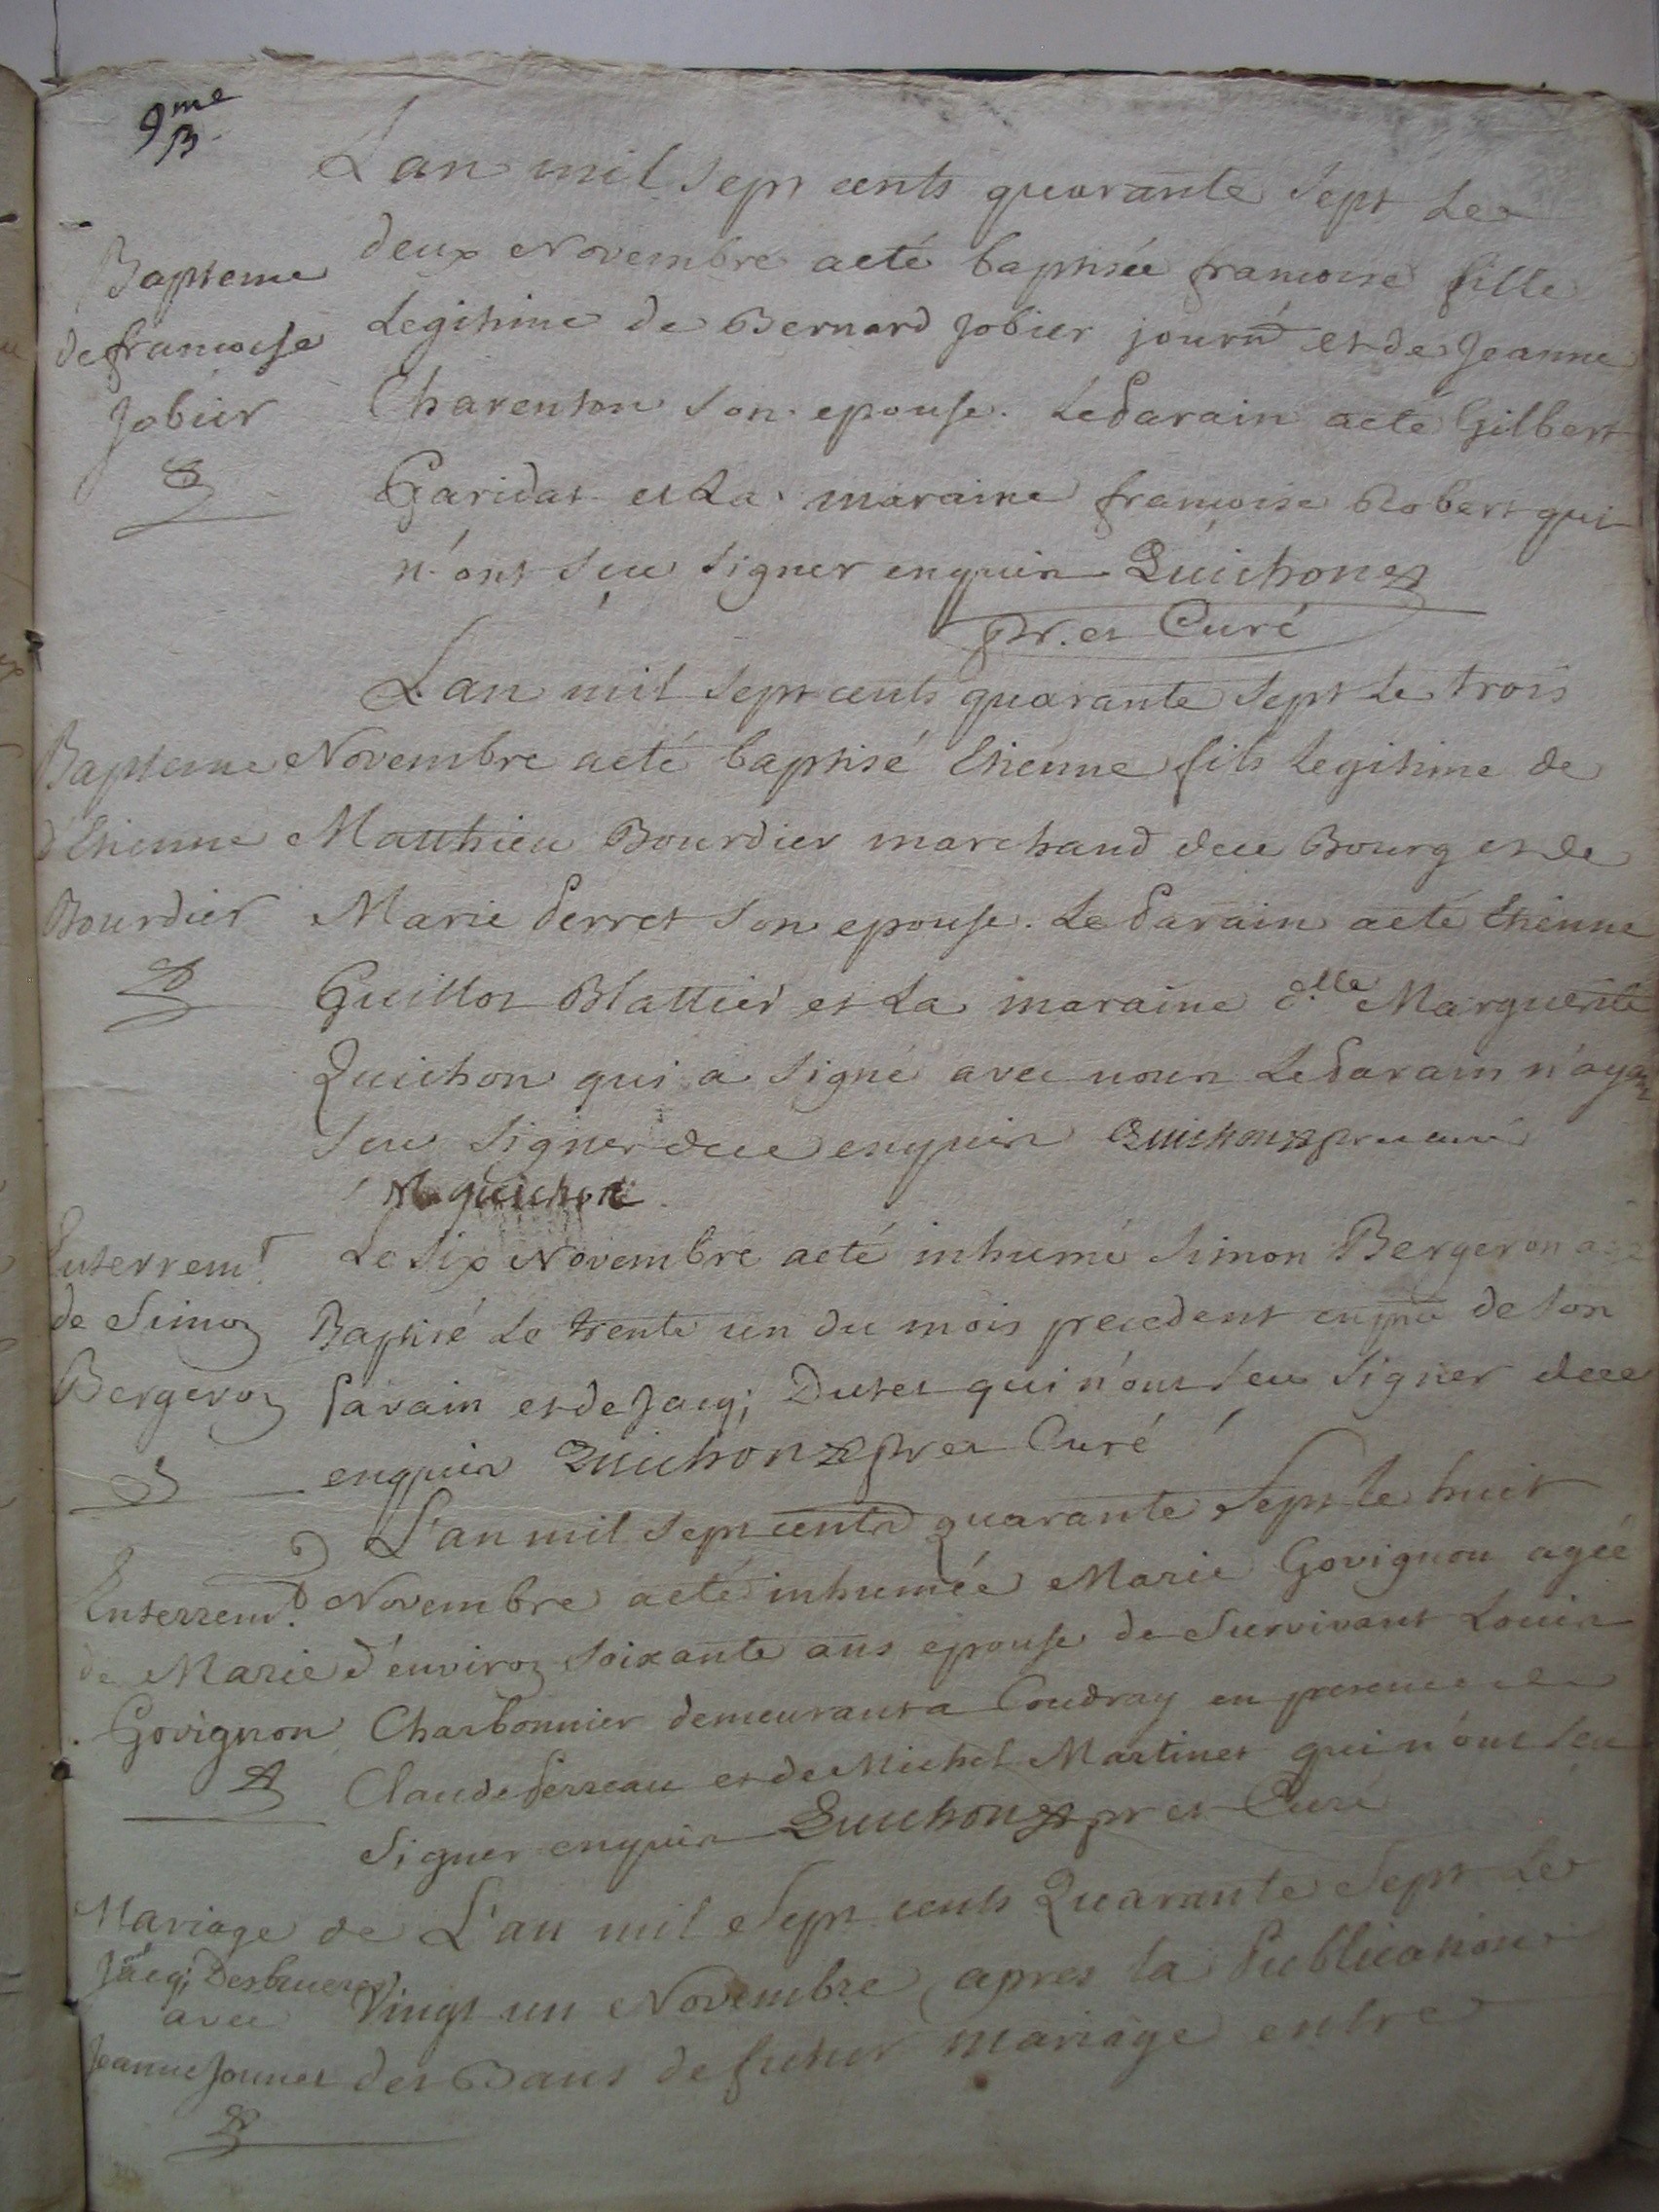 9me
B.
L'an mil sept cents quarante sept Le
Bapteme
de francoise
Jobier
deux Novembre aeté baptisée francoise fille
Legitime de Bernard Jobier journ et de Jeanne
Charenton son epouse. Le Parain aeté Gilbert
Garidat et La maraine francoise Robert qui
n'ont sceu signer enquis Quichon
pr. et Curé
L'an mil sept cents quarante sept Le trois
Bapteme
d'Etienne
Bourdier
Novembre aeté baptisé Etienne fils Legitime de
Matthieu Bourdier marchand du Bourg et de
Marie Perret son epouse. Le Parain aeté Etienne
Guillot Blattier et La maraine d.lle Marguerite
Quichon qui a signé avec nous Le Parain n'ayant
sceu signer de ce enquis Quichon pr et curé
M quichon
Enterremt.
de Simon
Bergeron
Le Six Novembre aeté inhumé Simon Bergeron
Baptisé Le trente un du mois precedent de son
Parain et de Jacq; Dutet qui n'ont sceu signer de ce
enquis Quichon pr et Curé
L'an mil sept cents quarante Sept le huit
Enterremt.
de Marie
Govignon
Novembre aeté inhumée Marie Govignon agée
d'environ soixante ans epouse de survivant Louis
Charbonnier demeurant a Coudray en presence de
Claude Perreau et de Michel Martinet qui n'ont sceu
signer enquis Quichon pr et Curé
Mariage de
Jacq; Desbrueres
avec
Jeanne Jounet
L'an mil Sept cents Quarante Sept Le
Vingt un Novembre apres la Publication
des Bans de futur mariage entre